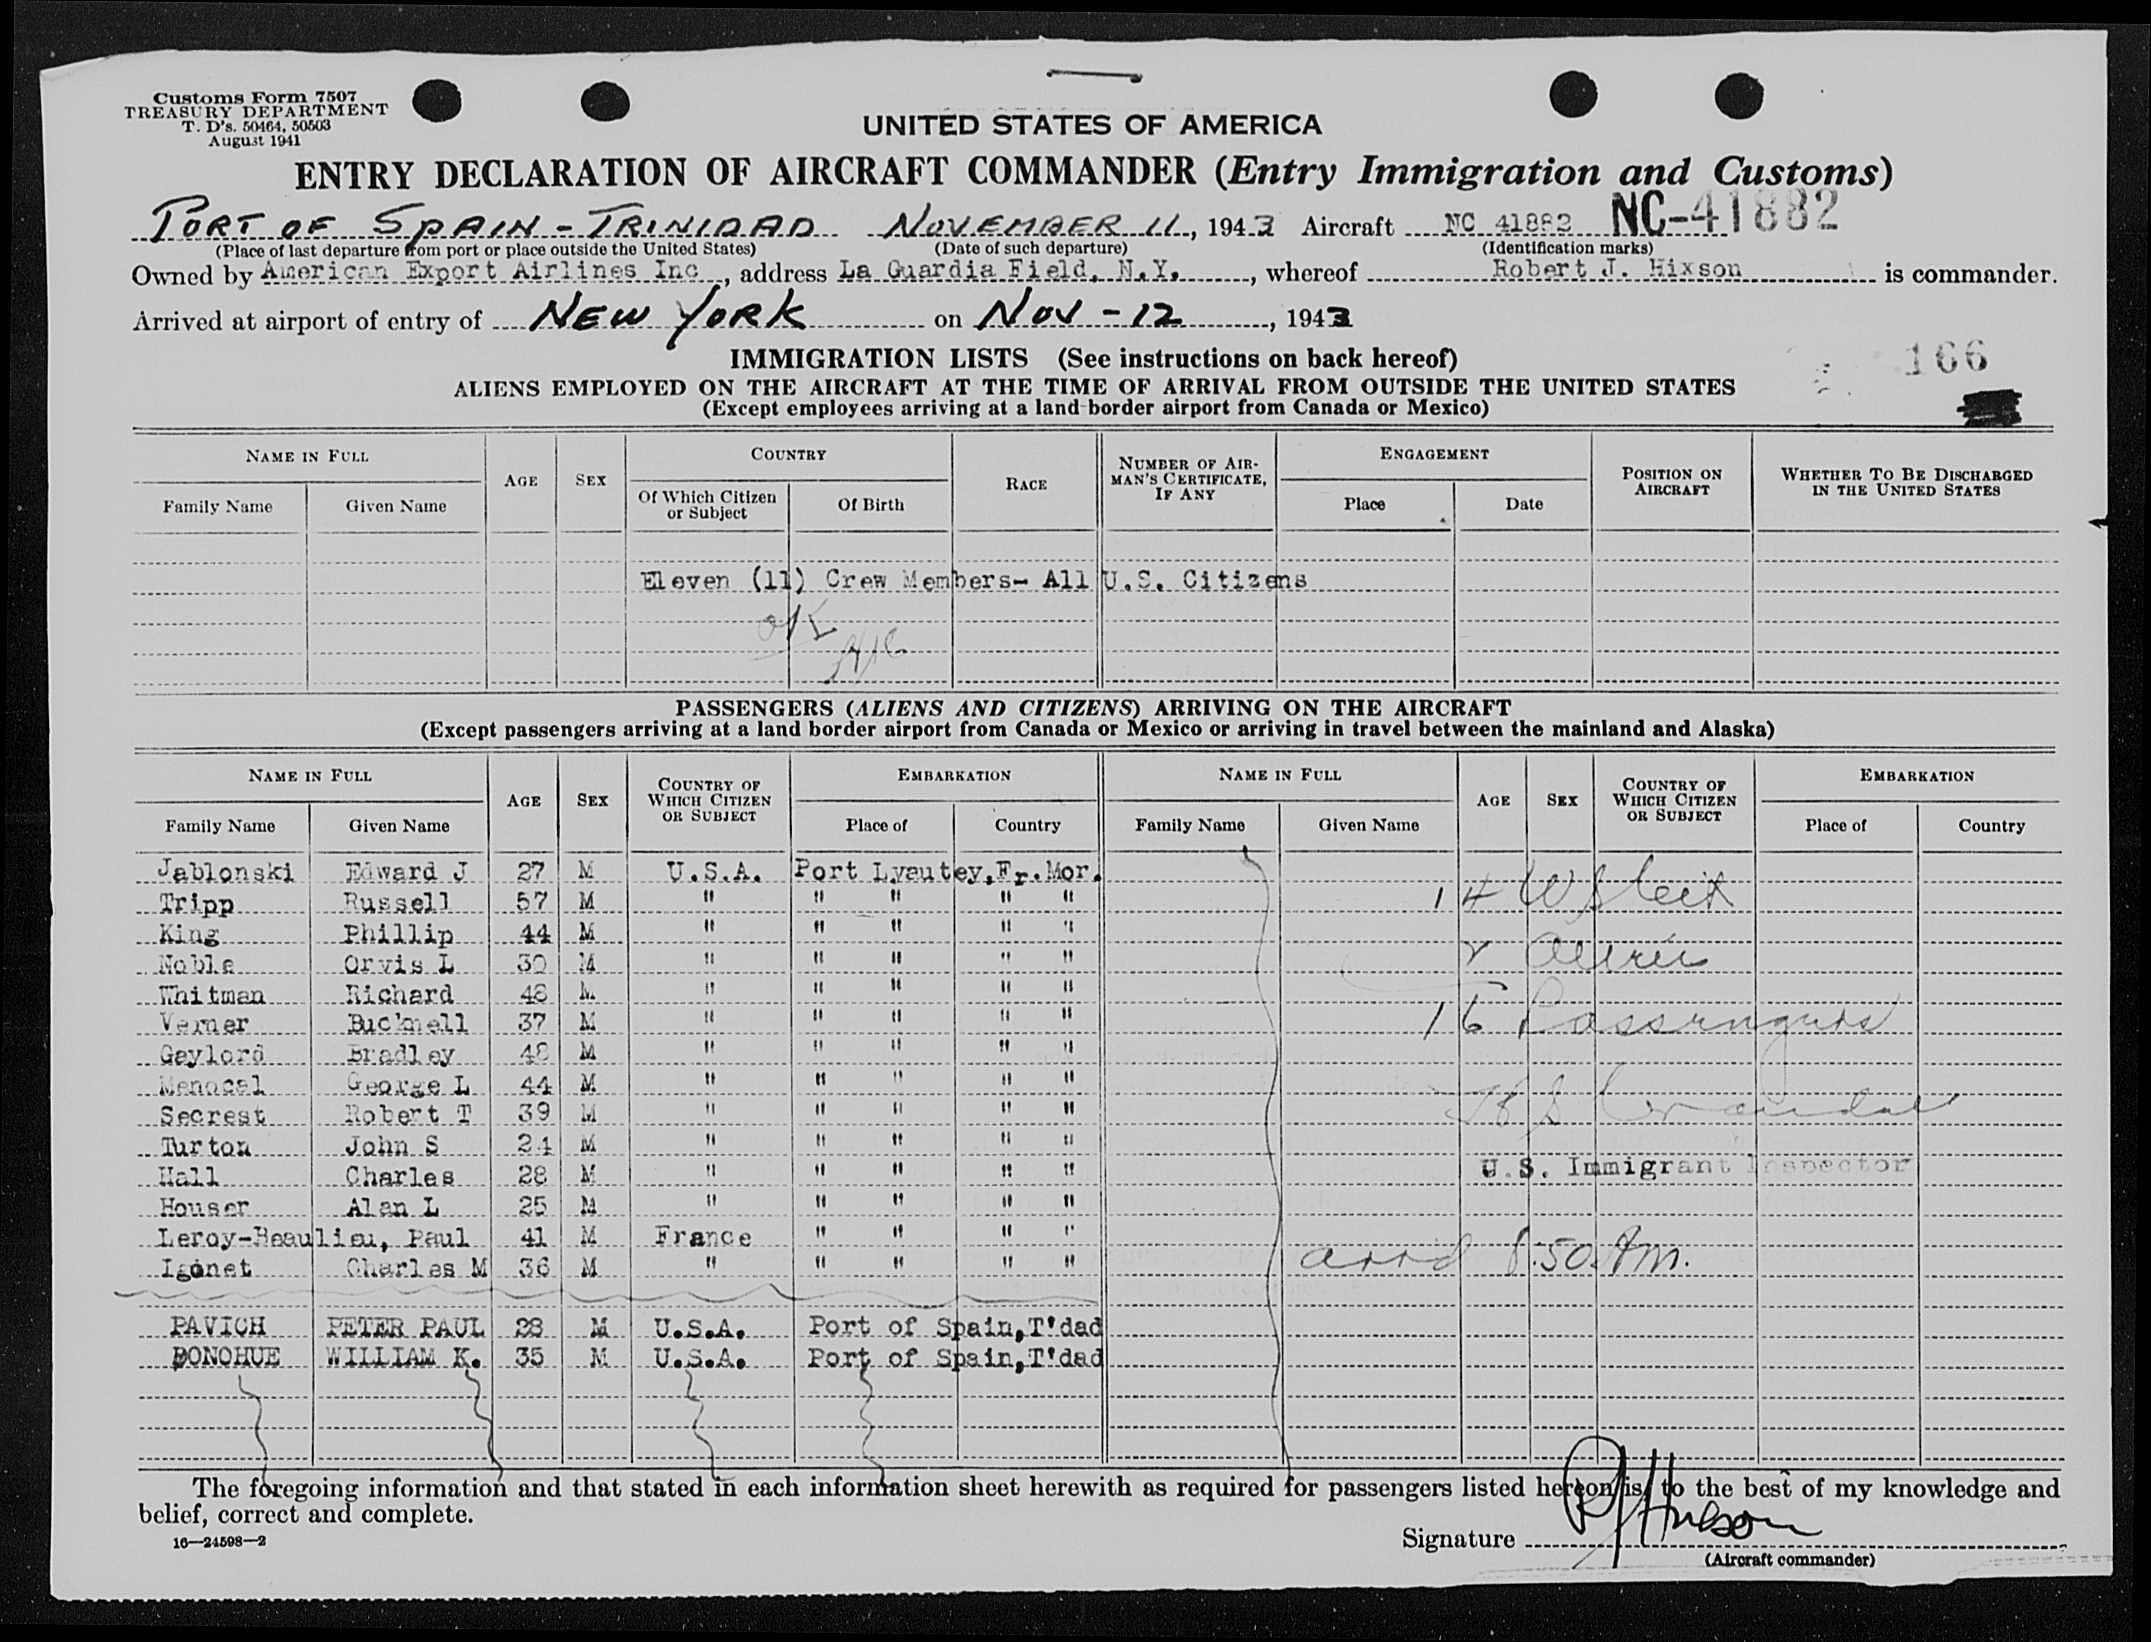 Customs Form 7507
TREASURY DEPARTMENT
T. D's. 50464, 50503
August 1941
UNITED STATES OF AMERICA
ENTRY DECLARATION OF AIRCRAFT COMMANDER (Entry Immigration and Customs)
PORT OF SPAIN - TRINIDAD NOVEMBER 11, 1943 Aircraft NC 41882 NC-41882
(Place of last departure from port or place outside the United States) (Date of such departure) (Identification marks)
Owned by American Export Airlines Inc, address La Guardia Field, N.Y., whereof Robert J. Hixson is commander.
Arrived at airport of entry of NEW YORK on NOV - 12, 1943
IMMIGRATION LISTS (See instructions on back hereof)
166
ALIENS EMPLOYED ON THE AIRCRAFT AT THE TIME OF ARRIVAL FROM OUTSIDE THE UNITED STATES
(Except employees arriving at a land border airport from Canada or Mexico)
NAME IN FULL AGE SEX COUNTRY RACE NUMBER OF AIRMAN'S CERTIFICATE, IF ANY ENGAGEMENT POSITION ON AIRCRAFT WHETHER TO BE DISCHARGED IN THE UNITED STATES
Family Name Given Name Of Which Citizen or Subject Of Birth Place Date
Eleven (11) Crew Members- All U.S. Citizens
OK
PASSENGERS (ALIENS AND CITIZENS) ARRIVING ON THE AIRCRAFT
(Except passengers arriving at a land border airport from Canada or Mexico or arriving in travel between the mainland and Alaska)
NAME IN FULL AGE SEX COUNTRY OF WHICH CITIZEN OR SUBJECT EMBARKATION NAME IN FULL AGE SEX COUNTRY OF WHICH CITIZEN OR SUBJECT EMBARKATION
Family Name Given Name Place of Country Family Name Given Name Place of Country
Jablonski Edward J 27 M U.S.A. Port Lyautey, Fr. Mor.
Tripp Russell 57 M " " " " " 14
King Phillip 44 M " " " " "
Noble Orvis L 30 M " " " " " 2
Whitman Richard 48 M " " " " "
Verner Bucknell 37 M " " " " " 16 Passengers
Gaylord Bradley 48 M " " " " "
Menocal George L 44 M " " " " "
Secrest Robert T 39 M " " " " "
Turton John S 24 M " " " " "
Hall Charles 28 M " " " " " U.S. Immigrant Inspector
Houser Alan L 25 M " " " " "
Leroy-Beaulieu, Paul 41 M France " " " "
Igonet Charles M 36 M " " " " " arrd 8.50 Am.
PAVICH PETER PAUL 28 M U.S.A. Port of Spain, T'dad
DONOHUE WILLIAM K. 35 M U.S.A. Port of Spain, T'dad
The foregoing information and that stated in each information sheet herewith as required for passengers listed hereon is, to the best of my knowledge and
belief, correct and complete.
16—24598—2
Signature RJ Hixson
(Aircraft commander)